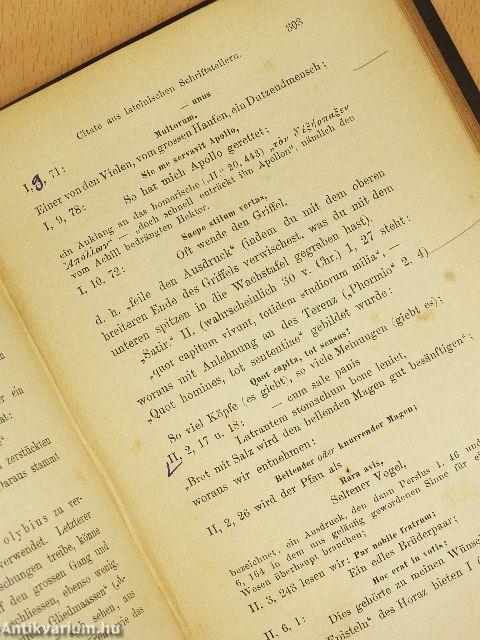 303
Citate aus lateinischen Schriftstellern.
— unus
I, 9, 71: Multorum,
Einer von den Vielen, vom grossen Haufen, ein Dutzendmensch;
I, 9, 78: Sic me servavit Apollo,
So hat mich Apollo gerettet;
ein Anklang an das homerische („Il.“ 20, 443) „τὸν δ' ἐξήρπαξεν
Ἀπόλλων“ — „doch schnell entrückt ihn Apollon“, nämlich den
vom Achill bedrängten Hektor.
I, 10, 72: Saepe stilum vertas,
Oft wende den Griffel,
d. h. „feile den Ausdruck“ (indem du mit dem oberen
breiteren Ende des Griffels verwischest, was du mit dem
unteren spitzen in die Wachstafel gegraben hast).
„Satir.“ II, (wahrscheinlich 30 v. Chr.) 1, 27 steht:
„quot capitum vivunt, totidem studiorum milia“, —
woraus mit Anlehnung an des Terenz („Phormio“ 2, 4)
„Quot homines, tot sententiae“ gebildet wurde:
Quot capita, tot sensus;
So viel Köpfe (es giebt), so viele Meinungen (giebt es);
II, 2, 17 u. 18: — cum sale panis
Latrantem stomachum bene leniet,
„Brot mit Salz wird den bellenden Magen gut besänftigen“;
woraus wir entnehmen:
Bellender oder knurrender Magen;
II, 2, 26 wird der Pfau als
Rara avis,
Seltener Vogel,
bezeichnet, ein Ausdruck, den dann Persius 1, 46 und
6, 164 in dem uns geläufig gewordenen Sinne für ei
Wesen überhaupt brauchen;
II. 3, 243 lesen wir: Par nobile fratrum;
Ein edles Brüderpaar;
II. 6, 1: Hoc erat in votis;
Dies gehörte zu meinen Wünsc
Episteln“ des Horaz bieten I
der ein
zerstückten
Daraus stammt
olybius zu ver-
verwendet. Letzterer
schungen treibe, könne
f den grossen Gang und
schliessen, ebenso wenig,
Gliedmaassen“
sehen, aus
ie das
Antikvarium.hu